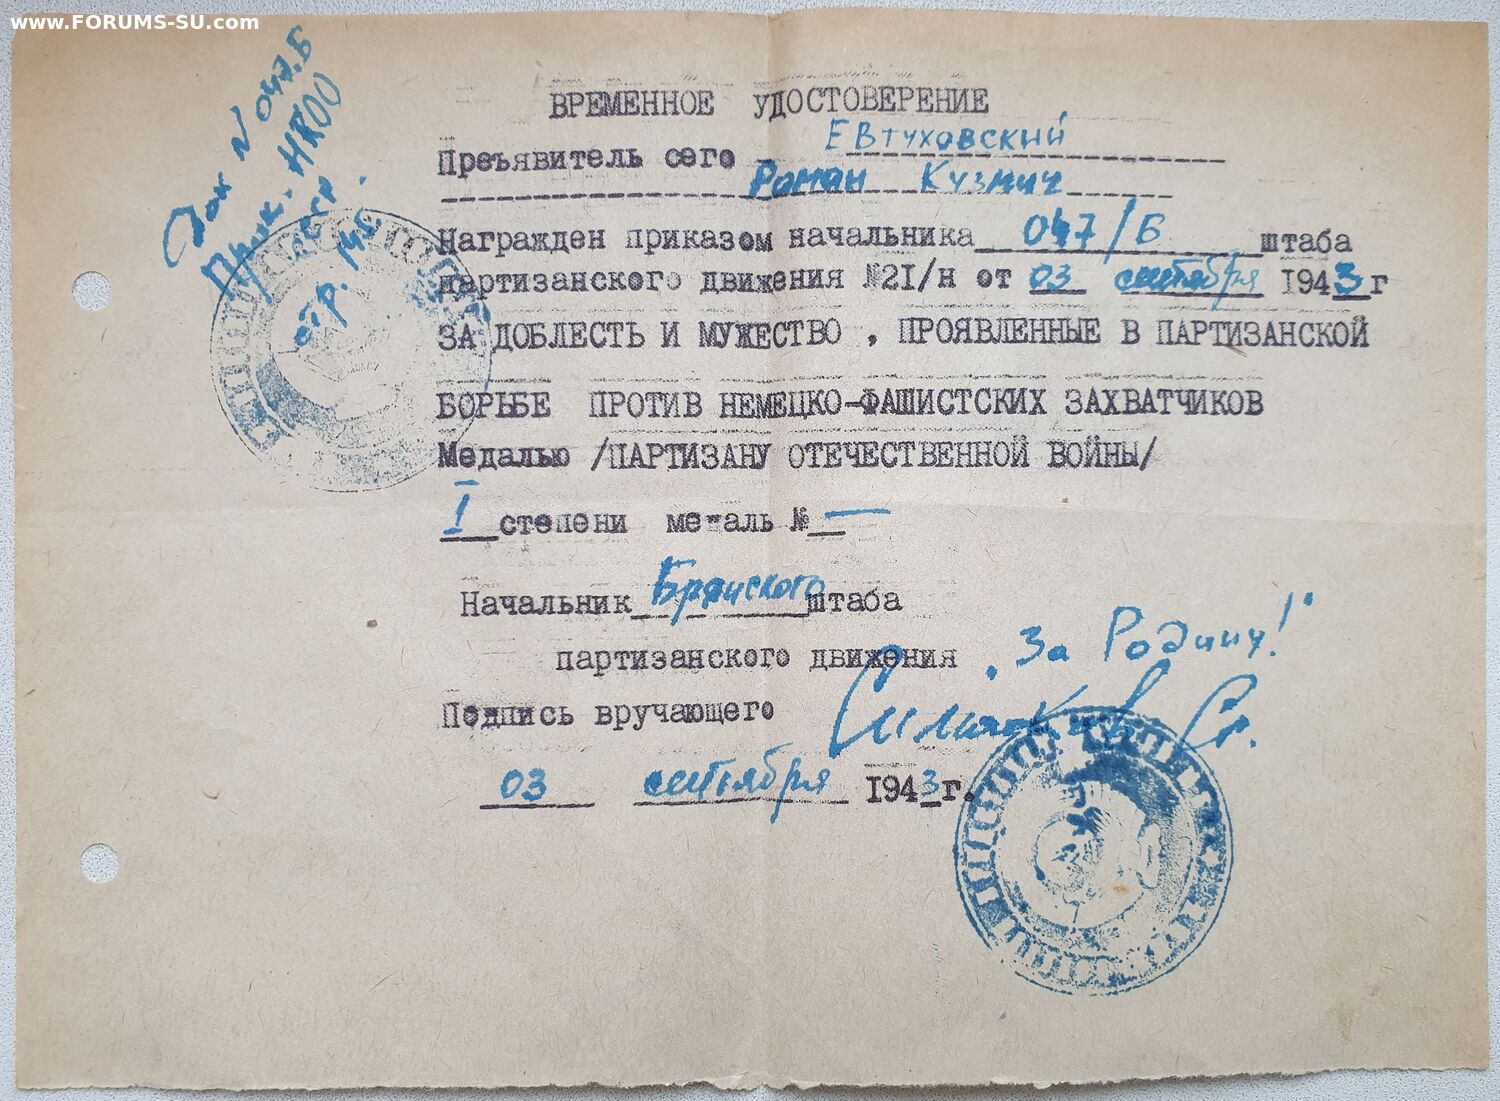 www.FORUMS-SU.com
Док № 047.Б
ВРЕМЕННОЕ УДОСТОВЕРЕНИЕ
Преъявитель сего Евтуховский
Роман Кузмич
Награжден приказом начальника 047/Б штаба
партизанского движения №2I/н от 03 сентября 1943г
ЗА ДОБЛЕСТЬ И МУЖЕСТВО , ПРОЯВЛЕННЫЕ В ПАРТИЗАНСКОЙ
БОРЬБЕ ПРОТИВ НЕМЕЦКО-ФАШИСТСКИХ ЗАХВАТЧИКОВ
Медалью /ПАРТИЗАНУ ОТЕЧЕСТВЕННОЙ ВОЙНЫ/
I степени медаль № —
Начальник Брянского штаба
партизанского движения „За Родину!"
Подпись вручающего
03 сентября 1943г.